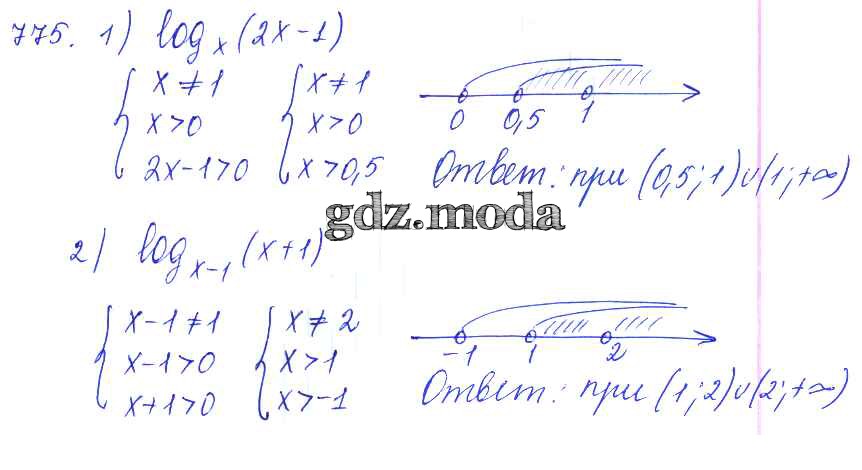 775. 1) logₓ(2x-1)
x≠1 x≠1
x>0 x>0
2x-1>0 x>0,5
0 0,5 1
Ответ: при (0,5;1)∪(1;+∞)
gdz.moda
2) logₓ₋₁(x+1)
x-1≠1 x≠2
x-1>0 x>1
x+1>0 x>-1
-1 1 2
Ответ: при (1;2)∪(2;+∞)